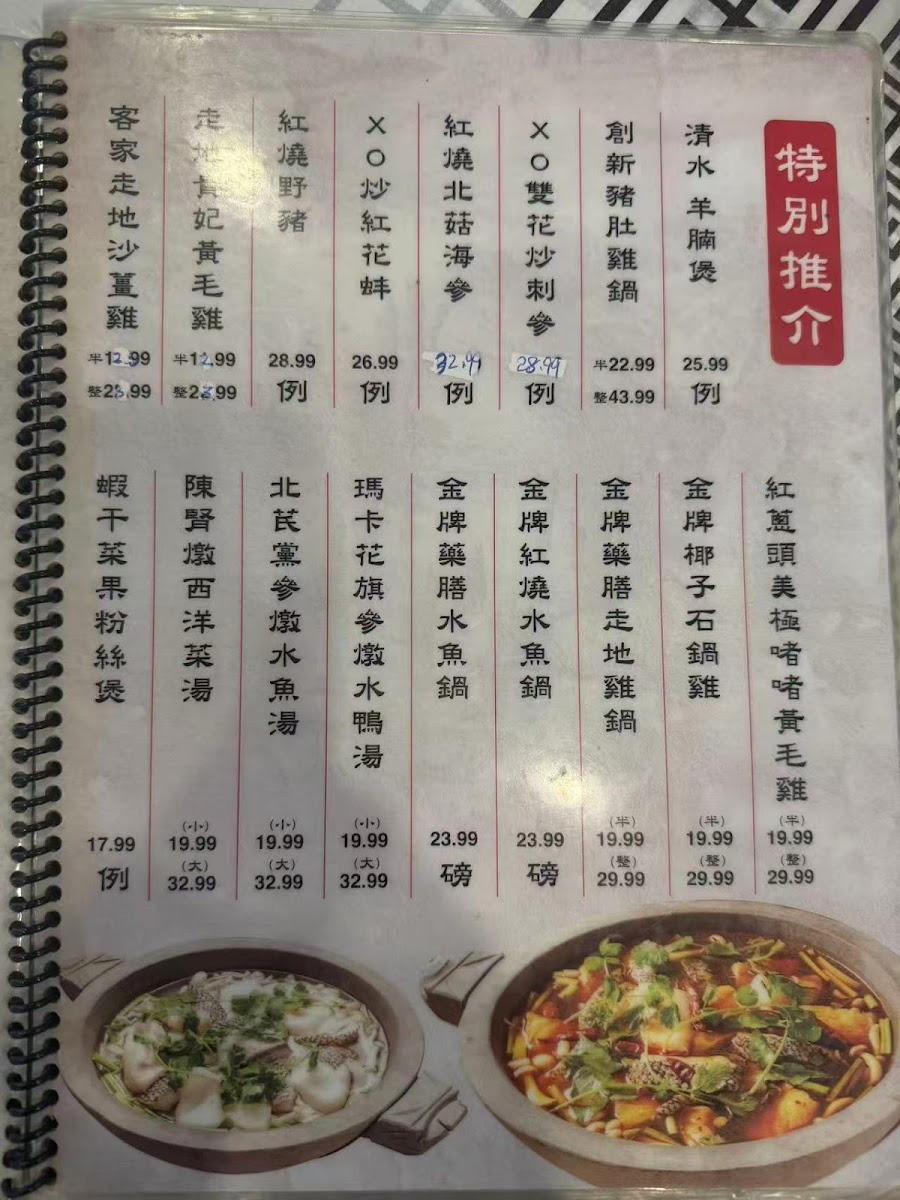 特別推介
清水羊腩煲
25.99
例
創新豬肚雞鍋
半22.99
整43.99
XO雙花炒刺參
28.99
例
紅燒北菇海參
32.99
例
XO炒紅花蚌
26.99
例
紅燒野豬
28.99
例
走地貴妃黃毛雞
半12.99
整23.99
客家走地沙薑雞
半12.99
整23.99
紅蔥頭美極啫啫黃毛雞
(半)
19.99
(整)
29.99
金牌椰子石鍋雞
(半)
19.99
(整)
29.99
金牌藥膳走地雞鍋
(半)
19.99
(整)
29.99
金牌紅燒水魚鍋
23.99
磅
金牌藥膳水魚鍋
23.99
磅
瑪卡花旗參燉水鴨湯
(小)
19.99
(大)
32.99
北芪黨參燉水魚湯
(小)
19.99
(大)
32.99
陳腎燉西洋菜湯
(小)
19.99
(大)
32.99
蝦干菜果粉絲煲
17.99
例